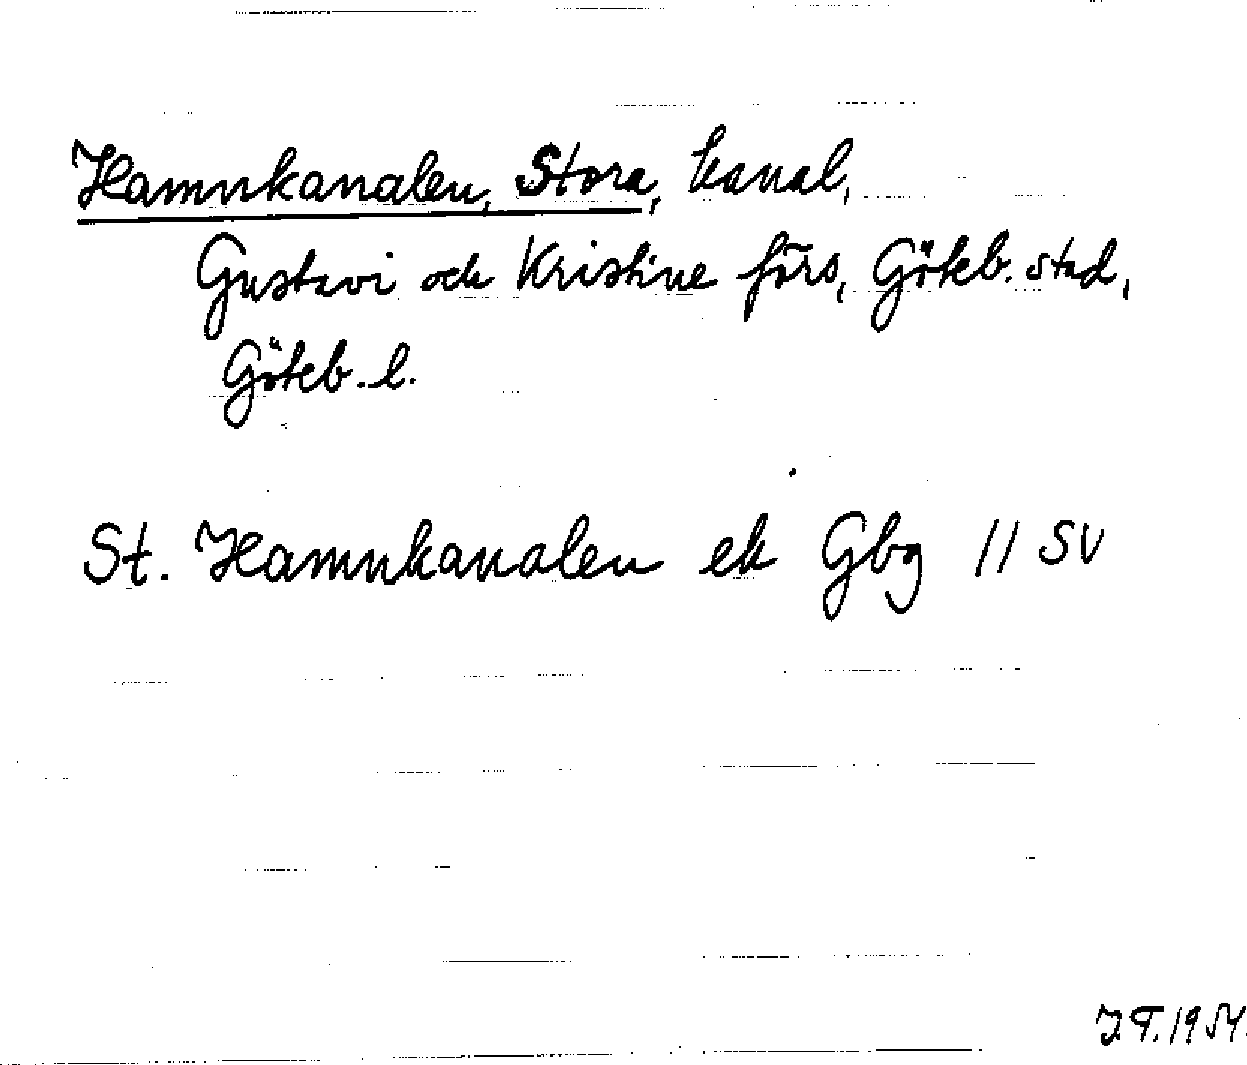 Hamnkanalen, Stora, kanal,
Gustavi och Kristine förs, Göteb. stad,
Göteb. l.
St. Hamnkanalen ek Gbg 11 SV
J.T. 1954.